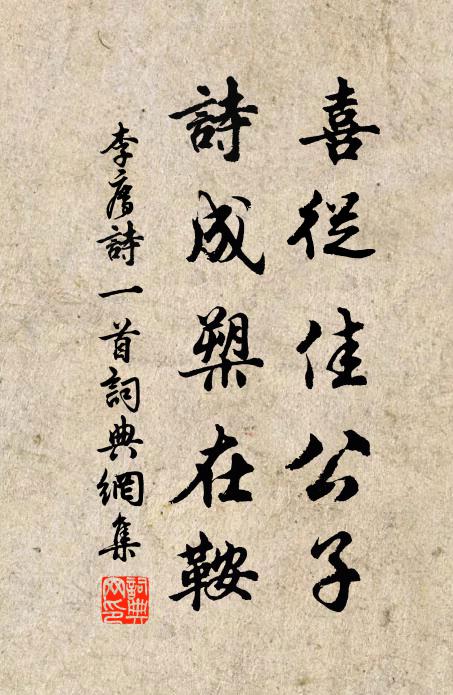 喜從佳公子
詩成槊在鞍
李廌詩一首詞典網集
詞典
网印